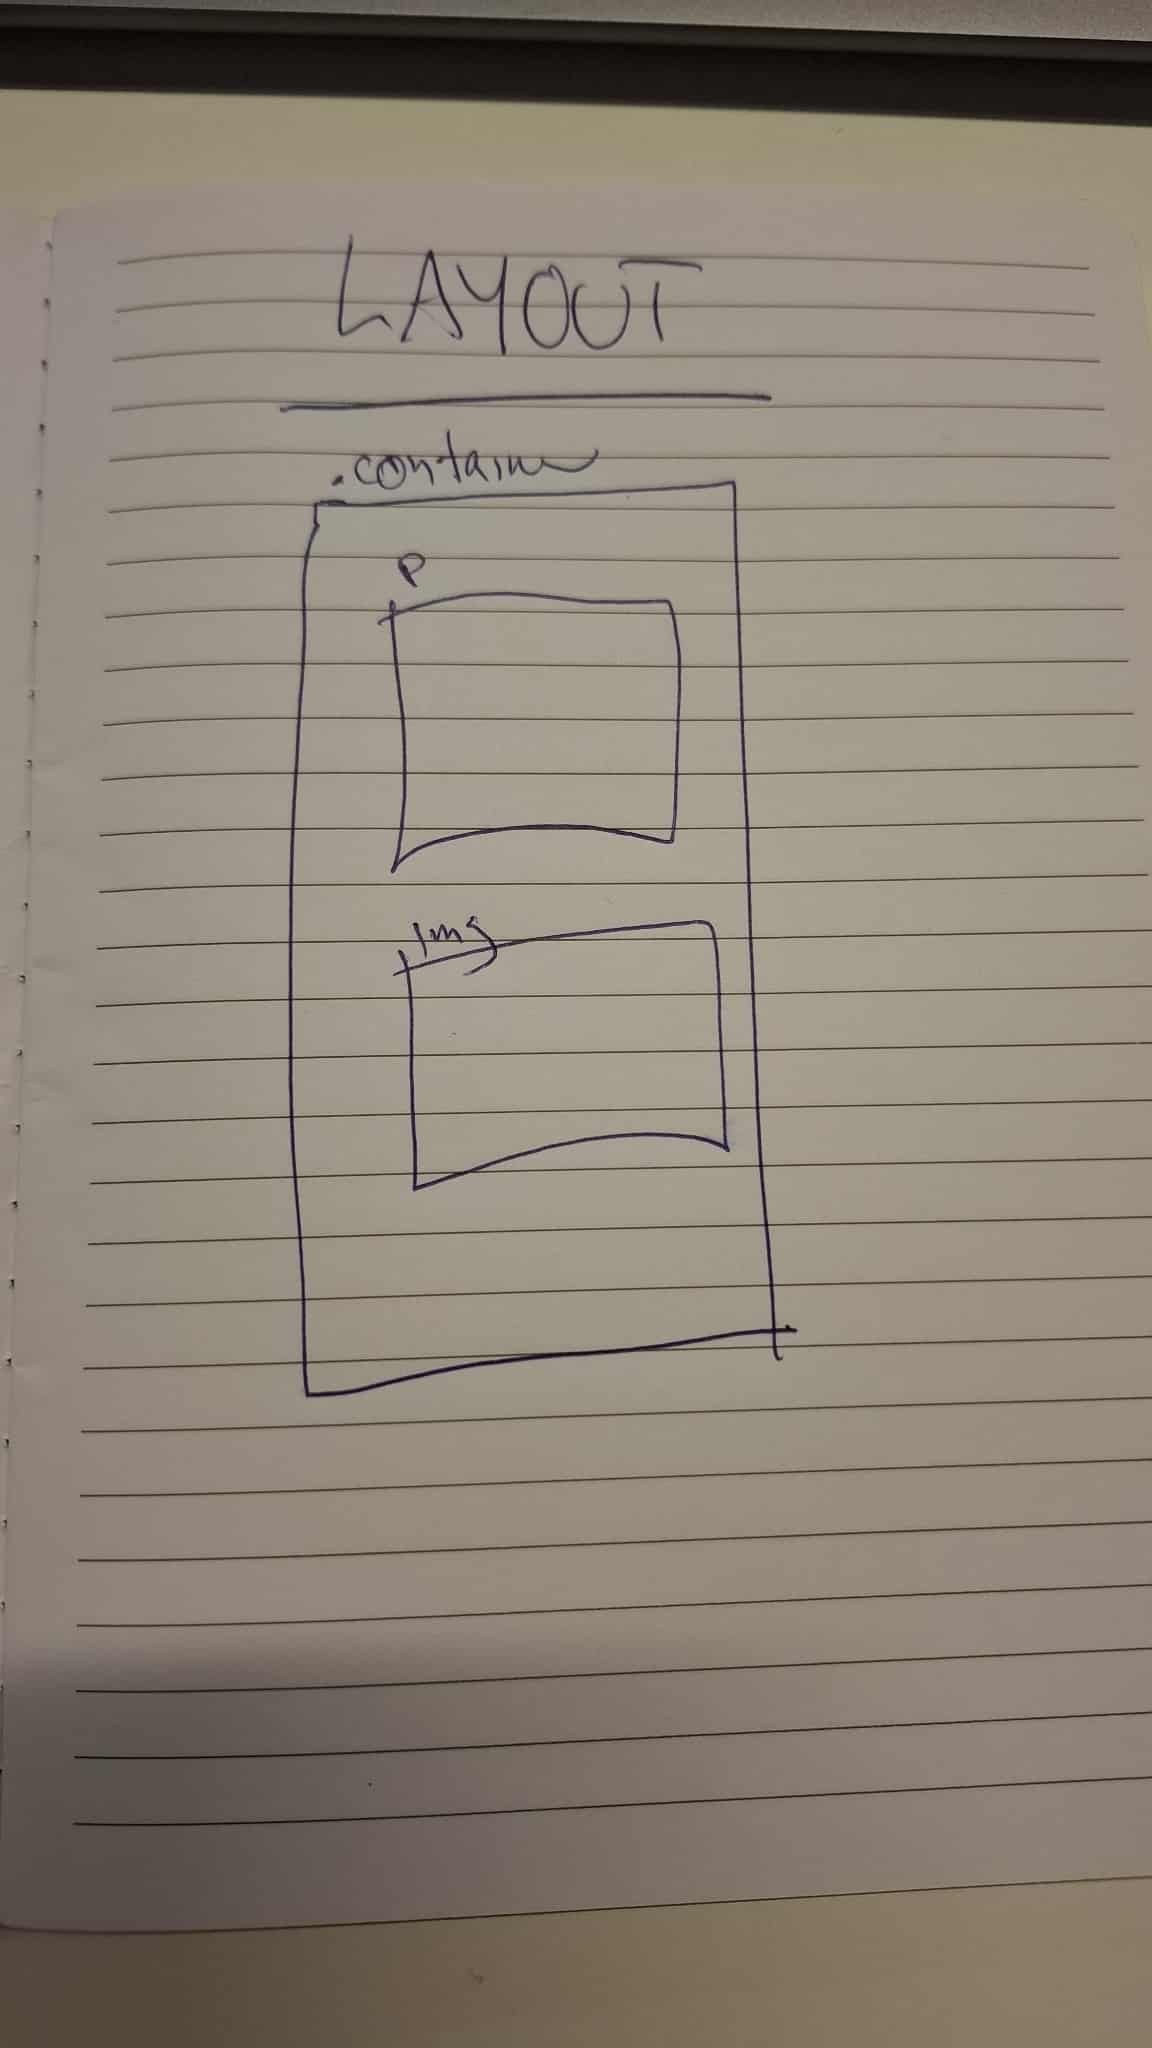 LAYOUT
.container
P
img